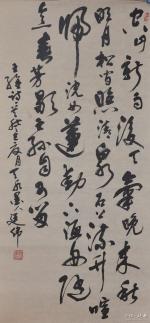 空山新雨後天氣晚来秋
明月松間照清泉石上流竹喧
歸浣女蓮動下漁舟随
意春芳歇王孫自可留
王維詩